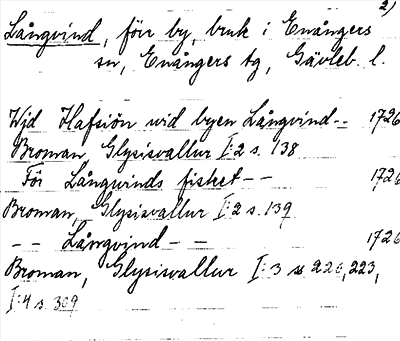 2)
Långvind, förr by, bruk i Enångers
sn, Enångers tg, Gävleb. l.
Wjd Hafsiön wid byen Långvind -- 1726
Broman, Glysisvallur I:2 s. 138
För Långwinds fisket -- 1726
Broman, Glysisvallur I:2 s. 139
-- Långvind -- 1726
Broman, Glysisvallur I:3 ss. 220, 223,
I:4 s. 309